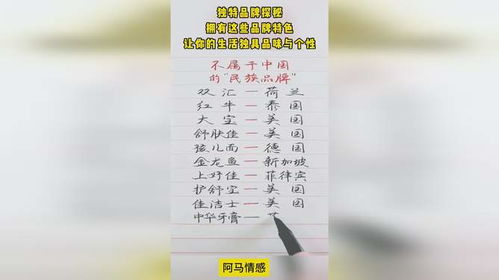 独特品牌探秘
拥有这些品牌特色
让你的生活独具品味与个性
不属于中国
的"民族品牌"
双汇—荷兰
红牛—泰国
大宝—美国
舒肤佳—美国
孩儿面—德国
金龙鱼—新加坡
上好佳—菲律宾
护舒宝—美国
佳洁士—美国
中华牙膏—
阿马情感